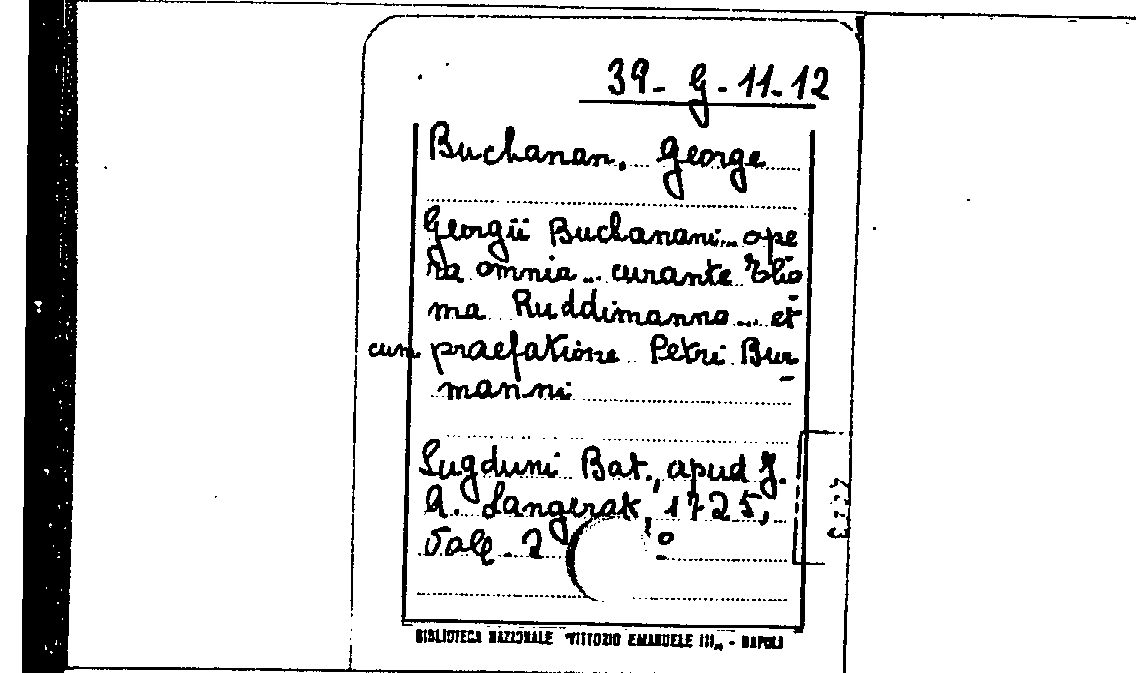 39- G - 11-12
Buchanan, George
Georgii Buchanani... ope
ra omnia... curante Tho
ma Ruddimanno... et
cum praefatione Petri Bur
manni
Lugduni Bat., apud J.
A. Langerak, 1725,
Voll. 2
BIBLIOTECA NAZIONALE "VITTORIO EMANUELE III„ - NAPOLI